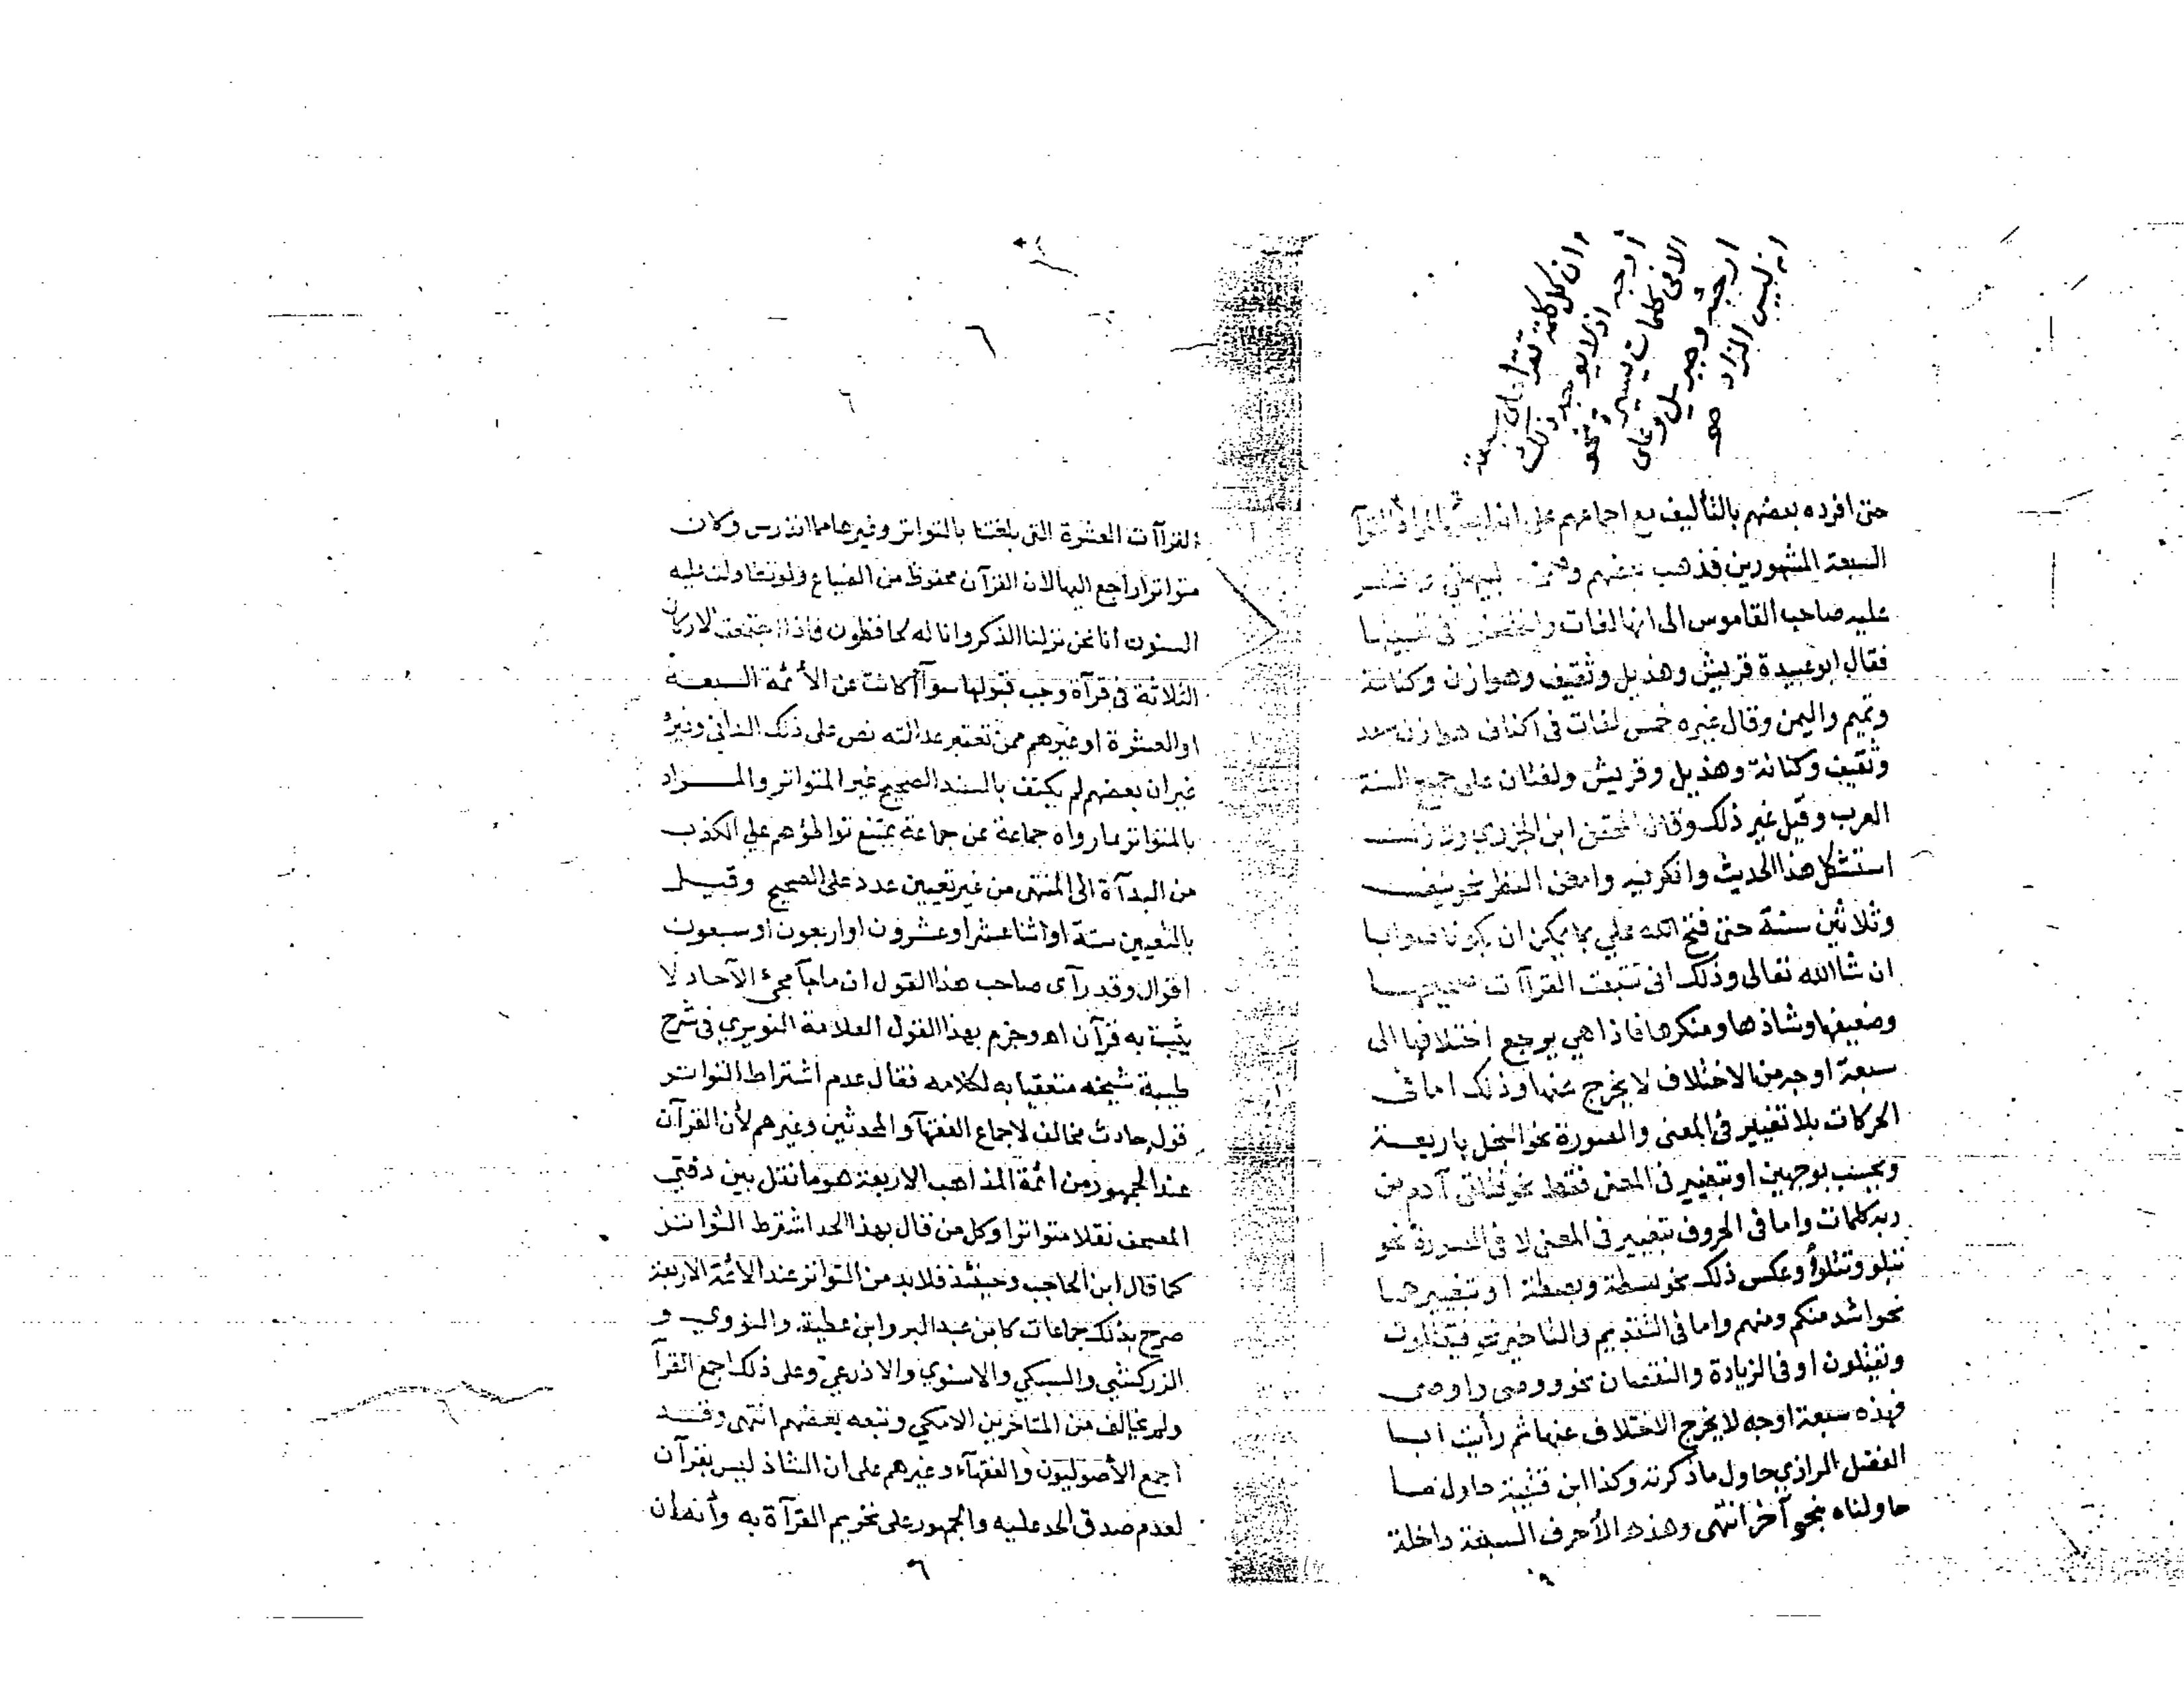 وان كل كلمة تقرأ على سبعة
أوجه اذ لا يوجد ذلك
الا في كلمات يسيرة نحو
ارجئه وجبريل وعلى
انه ليس المراد صح
حتى افرده بعضهم بالتأليف مع اجماعهم على انه ليس المراد القرآ
السبعة المشهورين فذهب بعضهم البيهقي واقتصر
عليه صاحب القاموس الى انها لغات واختلفوا في تعيينها
فقال ابو عبيدة قريش وهذيل وثقيف وهوازن وكنانة
وتميم واليمن وقال غيره خمس لغات في اكناف هوازن سعد
وثقيف وكنانة وهذيل وقريش ولغتان على جميع السنة
العرب وقيل غير ذلك وقال المحقق ابن الجزري ولا زلت
استشكل هذا الحديث وافكر فيه وامعن النظر نحو نيف
وثلاثين سنة حتى فتح الله علي بما يمكن ان يكون صوابا
ان شا الله تعالى وذلك اني تتبعت القرآآت صحيحها
وضعيفها وشاذها ومنكرها فاذا هي يرجع اختلافها الى
سبعة اوجه من الاختلاف لا يخرج عنها وذلك اما في
الحركات بلا تغيير في المعنى والصورة نحو البخل باربعة
ويحسب بوجهين او بتغيير في المعنى فقط نحو فتلقى آدم من
ربه كلمات واما في الحروف بتغيير في المعنى لا في الصورة نحو
تبلو وتتلوا وعكس ذلك نحو بسطة وبصطة او بتغييرهما
نحو اشد منكم ومنهم واما في التقديم والتاخير نحو فيقتلون
ويقتلون او في الزيادة والنقصان نحو ووصى واوصى
فهذه سبعة اوجه لا يخرج الاختلاف عنها ثم رأيت ابا
الفضل الرازي حاول ما ذكرته وكذا ابن قتيبة حاول ما
حاولناه بنحو آخر انتهى وهذه الأحرف السبعة داخلة
٦
القرآآت العشرة التي بلغتنا بالتواتر وغيرها مما اندرس وكان
متواترا راجع اليها لان القرآن محفوظ من الضياع ولو تطاولت عليه
السنون انا نحن نزلنا الذكر وانا له لحافظون فاذا اجتمعت الاركان
الثلاثة في قرآة وجب قبولها سوآ أكانت عن الأئمة السبعة
او العشرة او غيرهم ممن تعتبر عدالته نص على ذلك الداني وغيره
غير ان بعضهم لم يكتف بالسند الصحيح غير المتواتر والمراد
بالمتواتر ما رواه جماعة عن جماعة يمتنع تواطؤهم على الكذب
من البدآة الى المنتهى من غير تعيين عدد على الصحيح وقيل
بالتعيين ستة او اثنا عشر او عشرون او اربعون او سبعون
اقوال وقد رآى صاحب هذا القول ان ما جآ مجئ الآحاد لا
يثبت به قرآن اهـ وجزم بهذا القول العلامة النويري في شرح
طيبة شيخه متعقبا به لكلامه فقال عدم اشتراط التواتر
قول حادث مخالف لاجماع الفقهآ والمحدثين وغيرهم لأن القرآن
عند الجمهور من ائمة المذاهب الاربعة هو ما نقل بين دفتي
المصحف نقلا متواترا وكل من قال بهذا الحد اشترط التواتر
كما قال ابن الحاجب وحينئذ فلا بد من التواتر عند الائمة الاربعة
صرح بذلك جماعات كابن عبد البر وابن عطية والنووي و
الزركشي والسبكي والاسنوي والاذرعي وعلى ذلك اجمع القرآ
ولم يخالف من المتاخرين الا مكي وتبعه بعضهم انتهى وقد
اجمع الأصوليون والفقهآء وغيرهم على ان الشاذ ليس بقرآن
لعدم صدق الحد عليه والجمهور على تحريم القرآة به وأنه ان
٦